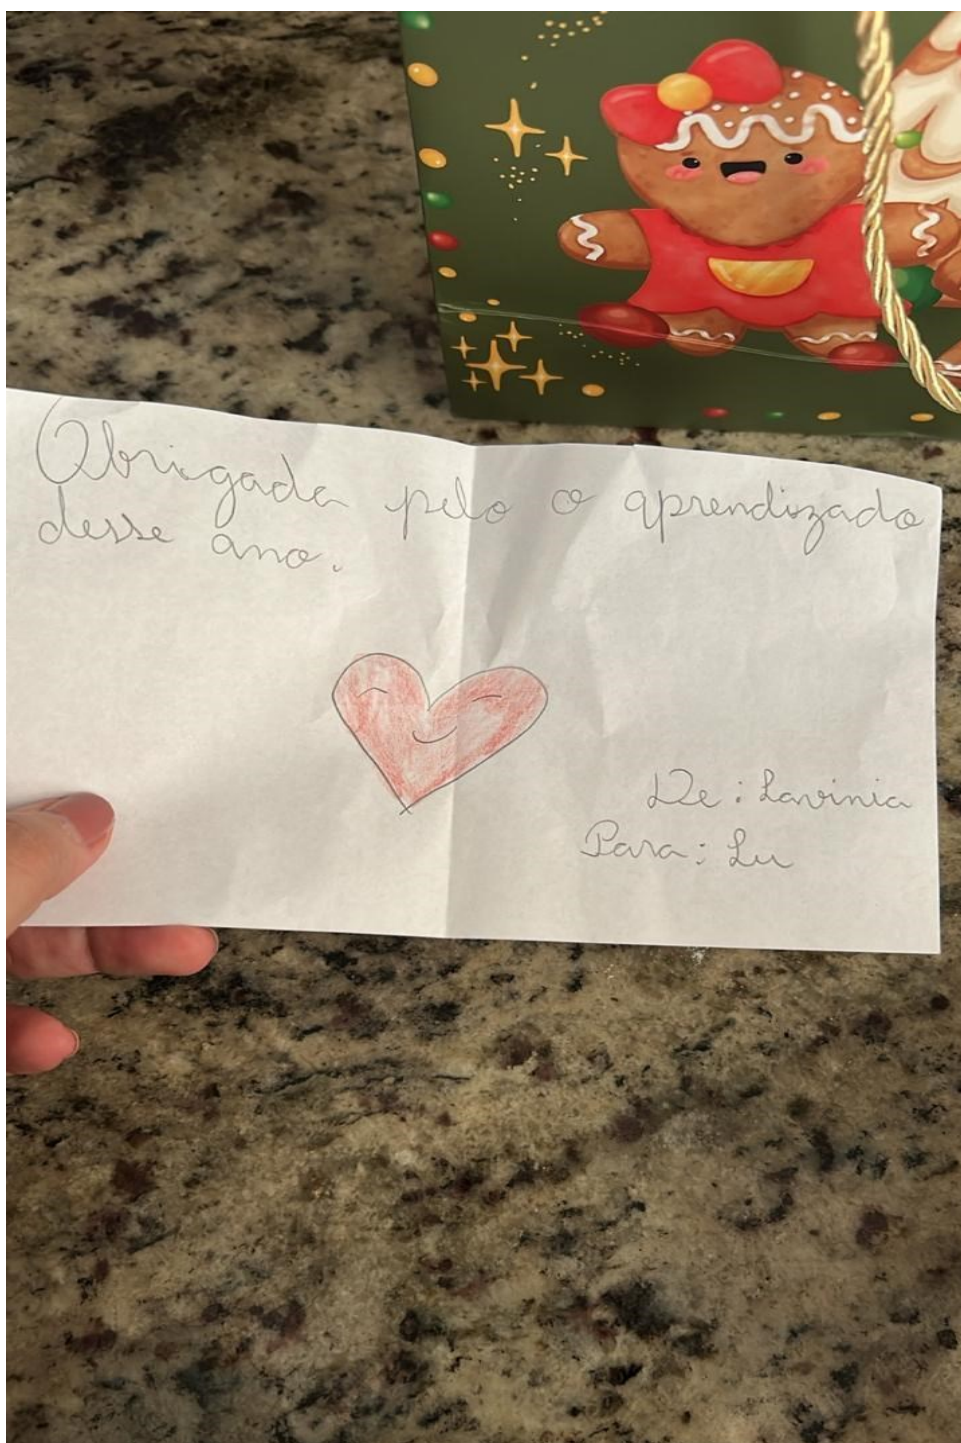 Obrigada pelo o aprendizado
desse ano.
De: Lavinia
Para: Lu